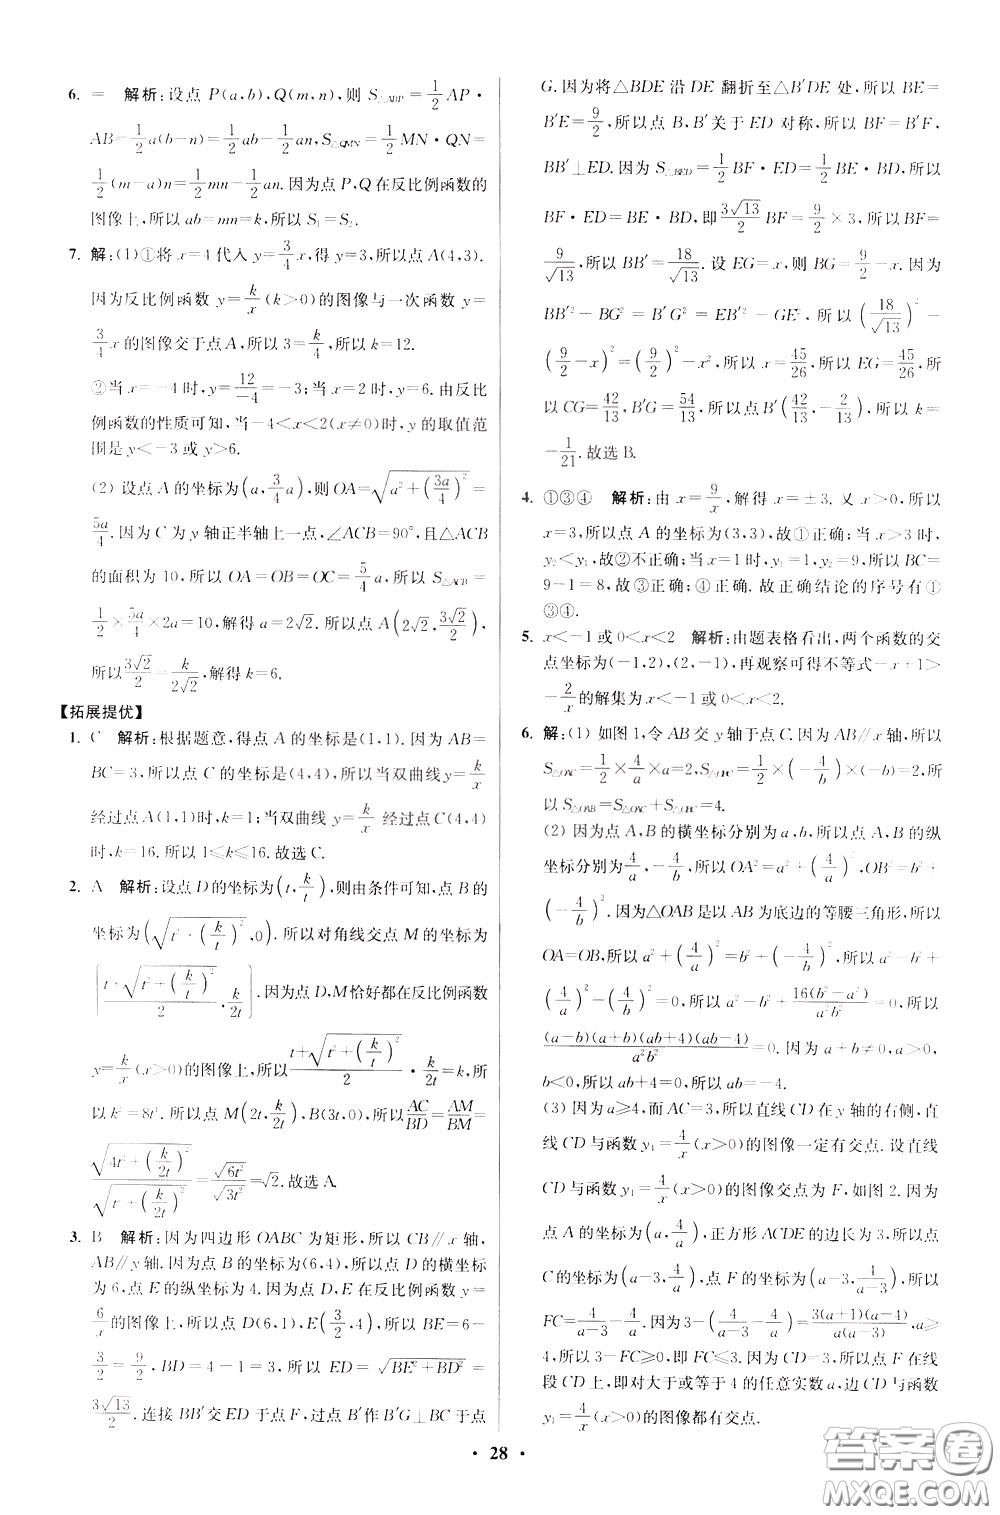 6. = 解析:设点 P(a,b),Q(m,n),则 S△ABP=1/2 AP·
AB=1/2 a(b−n)=1/2 ab−1/2 an,S△QMN=1/2 MN·QN=
1/2(m−a)n=1/2 mn−1/2 an.因为点 P,Q在反比例函数的
图像上,所以 ab=mn=k,所以 S₁=S₂.
7. 解:(1)①将 x=4 代入 y=3/4 x,得 y=3,所以点 A(4,3).
因为反比例函数 y=k/x(k>0)的图像与一次函数 y=
3/4 x 的图像交于点 A,所以 3=k/4,所以 k=12.
②当 x=−4 时,y=12/−4=−3;当 x=2 时,y=6.由反比
例函数的性质可知,当−4<x<2(x≠0)时,y 的取值范
围是 y<−3 或 y>6.
(2) 设点 A 的坐标为(a,3/4 a),则 OA=√(a²+(3a/4)²)=
5a/4.因为 C 为 y 轴正半轴上一点,∠ACB=90°,且△ACB
的面积为 10,所以 OA=OB=OC=5/4 a,所以 S△ACB=
1/2×5a/4×2a=10,解得 a=2√2.所以点 A(2√2,3√2/2),
所以3√2/2=k/2√2,解得 k=6.
【拓展提优】
1. C 解析:根据题意,得点 A 的坐标是(1,1).因为 AB=
BC=3,所以点 C 的坐标是(4,4),所以当双曲线 y=k/x
经过点 A(1,1)时,k=1;当双曲线 y=k/x 经过点 C(4,4)
时,k=16.所以 1≤k≤16.故选 C.
2. A 解析:设点 D 的坐标为(t,k/t),则由条件可知,点 B 的
坐标为(√(t²+(k/t)²),0).所以对角线交点 M 的坐标为
[(t+√(t²+(k/t)²))/2,k/2t].因为点 D,M 恰好都在反比例函数
y=k/x(x>0)的图像上,所以(t+√(t²+(k/t)²))/2·k/2t=k,所
以 k²=8t⁴.所以点 M(2t,k/2t),B(3t,0).所以AC/BD=AM/BM=
√(4t²+(k/2t)²)/√(t²+(k/2t)²)=√6t²/√3t²=√2.故选 A.
3. B 解析:因为四边形 OABC 为矩形,所以 CB∥x 轴,
AB∥y 轴.因为点 B 的坐标为(6,4),所以点 D 的横坐标
为 6,点 E 的纵坐标为 4.因为点 D,E 在反比例函数 y=
6/x 的图像上,所以点 D(6,1),E(3/2,4),所以 BE=6−
3/2=9/2,BD=4−1=3,所以 ED=√(BE²+BD²)=
3√13/2.连接 BB′交 ED 于点 F,过点 B′作 B′G⊥BC 于点
G.因为将△BDE 沿 DE 翻折至△B′DE 处,所以 BE=
B′E=9/2,所以点 B,B′关于 ED 对称,所以 BF=B′F,
BB′⊥ED.因为 S△BED=1/2 BF·ED=1/2 BE·BD,所以
BF·ED=BE·BD,即3√13/2 BF=9/2×3,所以 BF=
9/√13,所以 BB′=18/√13.设 EG=x,则 BG=9/2−x.因为
BB′²−BG²=B′G²=EB′²−GE²,所以(18/√13)²−
(9/2−x)²=(9/2)²−x²,所以 x=45/26,所以 EG=45/26,所
以 CG=42/13,B′G=54/13,所以点 B′(42/13,−2/13),所以 k=
−1/21.故选 B.
4. ①③④ 解析:由 x=9/x,解得 x=±3.又 x>0,所以
x=3,所以点 A 的坐标为(3,3),故①正确;当 x>3 时,
y₂<y₁,故②不正确;当 x=1 时,y₁=1,y₂=9,所以 BC=
9−1=8,故③正确;④正确.故正确结论的序号有①
③④.
5. x<−1 或 0<x<2 解析:由题表格看出,两个函数的交
点坐标为(−1,2),(2,−1),再观察可得不等式−x+1>
−2/x的解集为 x<−1 或 0<x<2.
6. 解:(1) 如图 1,令 AB 交 y 轴于点 C.因为 AB∥x 轴,所以
S△OAC=1/2×4/a×a=2,S△OBC=1/2×(−4/b)×(−b)=2,所
以 S△OAB=S△OAC+S△OBC=4.
(2) 因为点 A,B 的横坐标分别为 a,b,所以点 A,B 的纵
坐标分别为4/a,−4/b,所以 OA²=a²+(4/a)²,OB²=b²+
(−4/b)².因为△OAB 是以 AB 为底边的等腰三角形,所以
OA=OB,所以 a²+(4/a)²=b²+(−4/b)²,所以 a²−b²+
(4/a)²−(4/b)²=0,所以 a²−b²+16(b²−a²)/a²b²=0,所以
(a−b)(a+b)(ab+4)(ab−4)/a²b²=0.因为 a+b≠0,a>0,
b<0,所以 ab+4=0,所以 ab=−4.
(3) 因为 a≥4,而 AC=3,所以直线 CD 在 y 轴的右侧,直
线 CD 与函数 y₁=4/x(x>0)的图像一定有交点.设直线
CD 与函数 y₁=4/x(x>0)的图像交点为 F,如图 2.因为
点 A 的坐标为(a,4/a),正方形 ACDE 的边长为 3,所以点
C 的坐标为(a−3,4/a),点 F 的坐标为(a−3,4/(a−3)),所以
FC=4/(a−3)−4/a.因为 3−(4/(a−3)−4/a)=3(a+1)(a−4)/a(a−3),a≥
4,所以 3−FC≥0,即 FC≤3.因为 CD=3,所以点 F 在线
段 CD 上,即对大于或等于 4 的任意实数 a,边 CD 与函数
y₁=4/x(x>0)的图像都有交点.
· 28 ·
答案圈
MXQE.COM